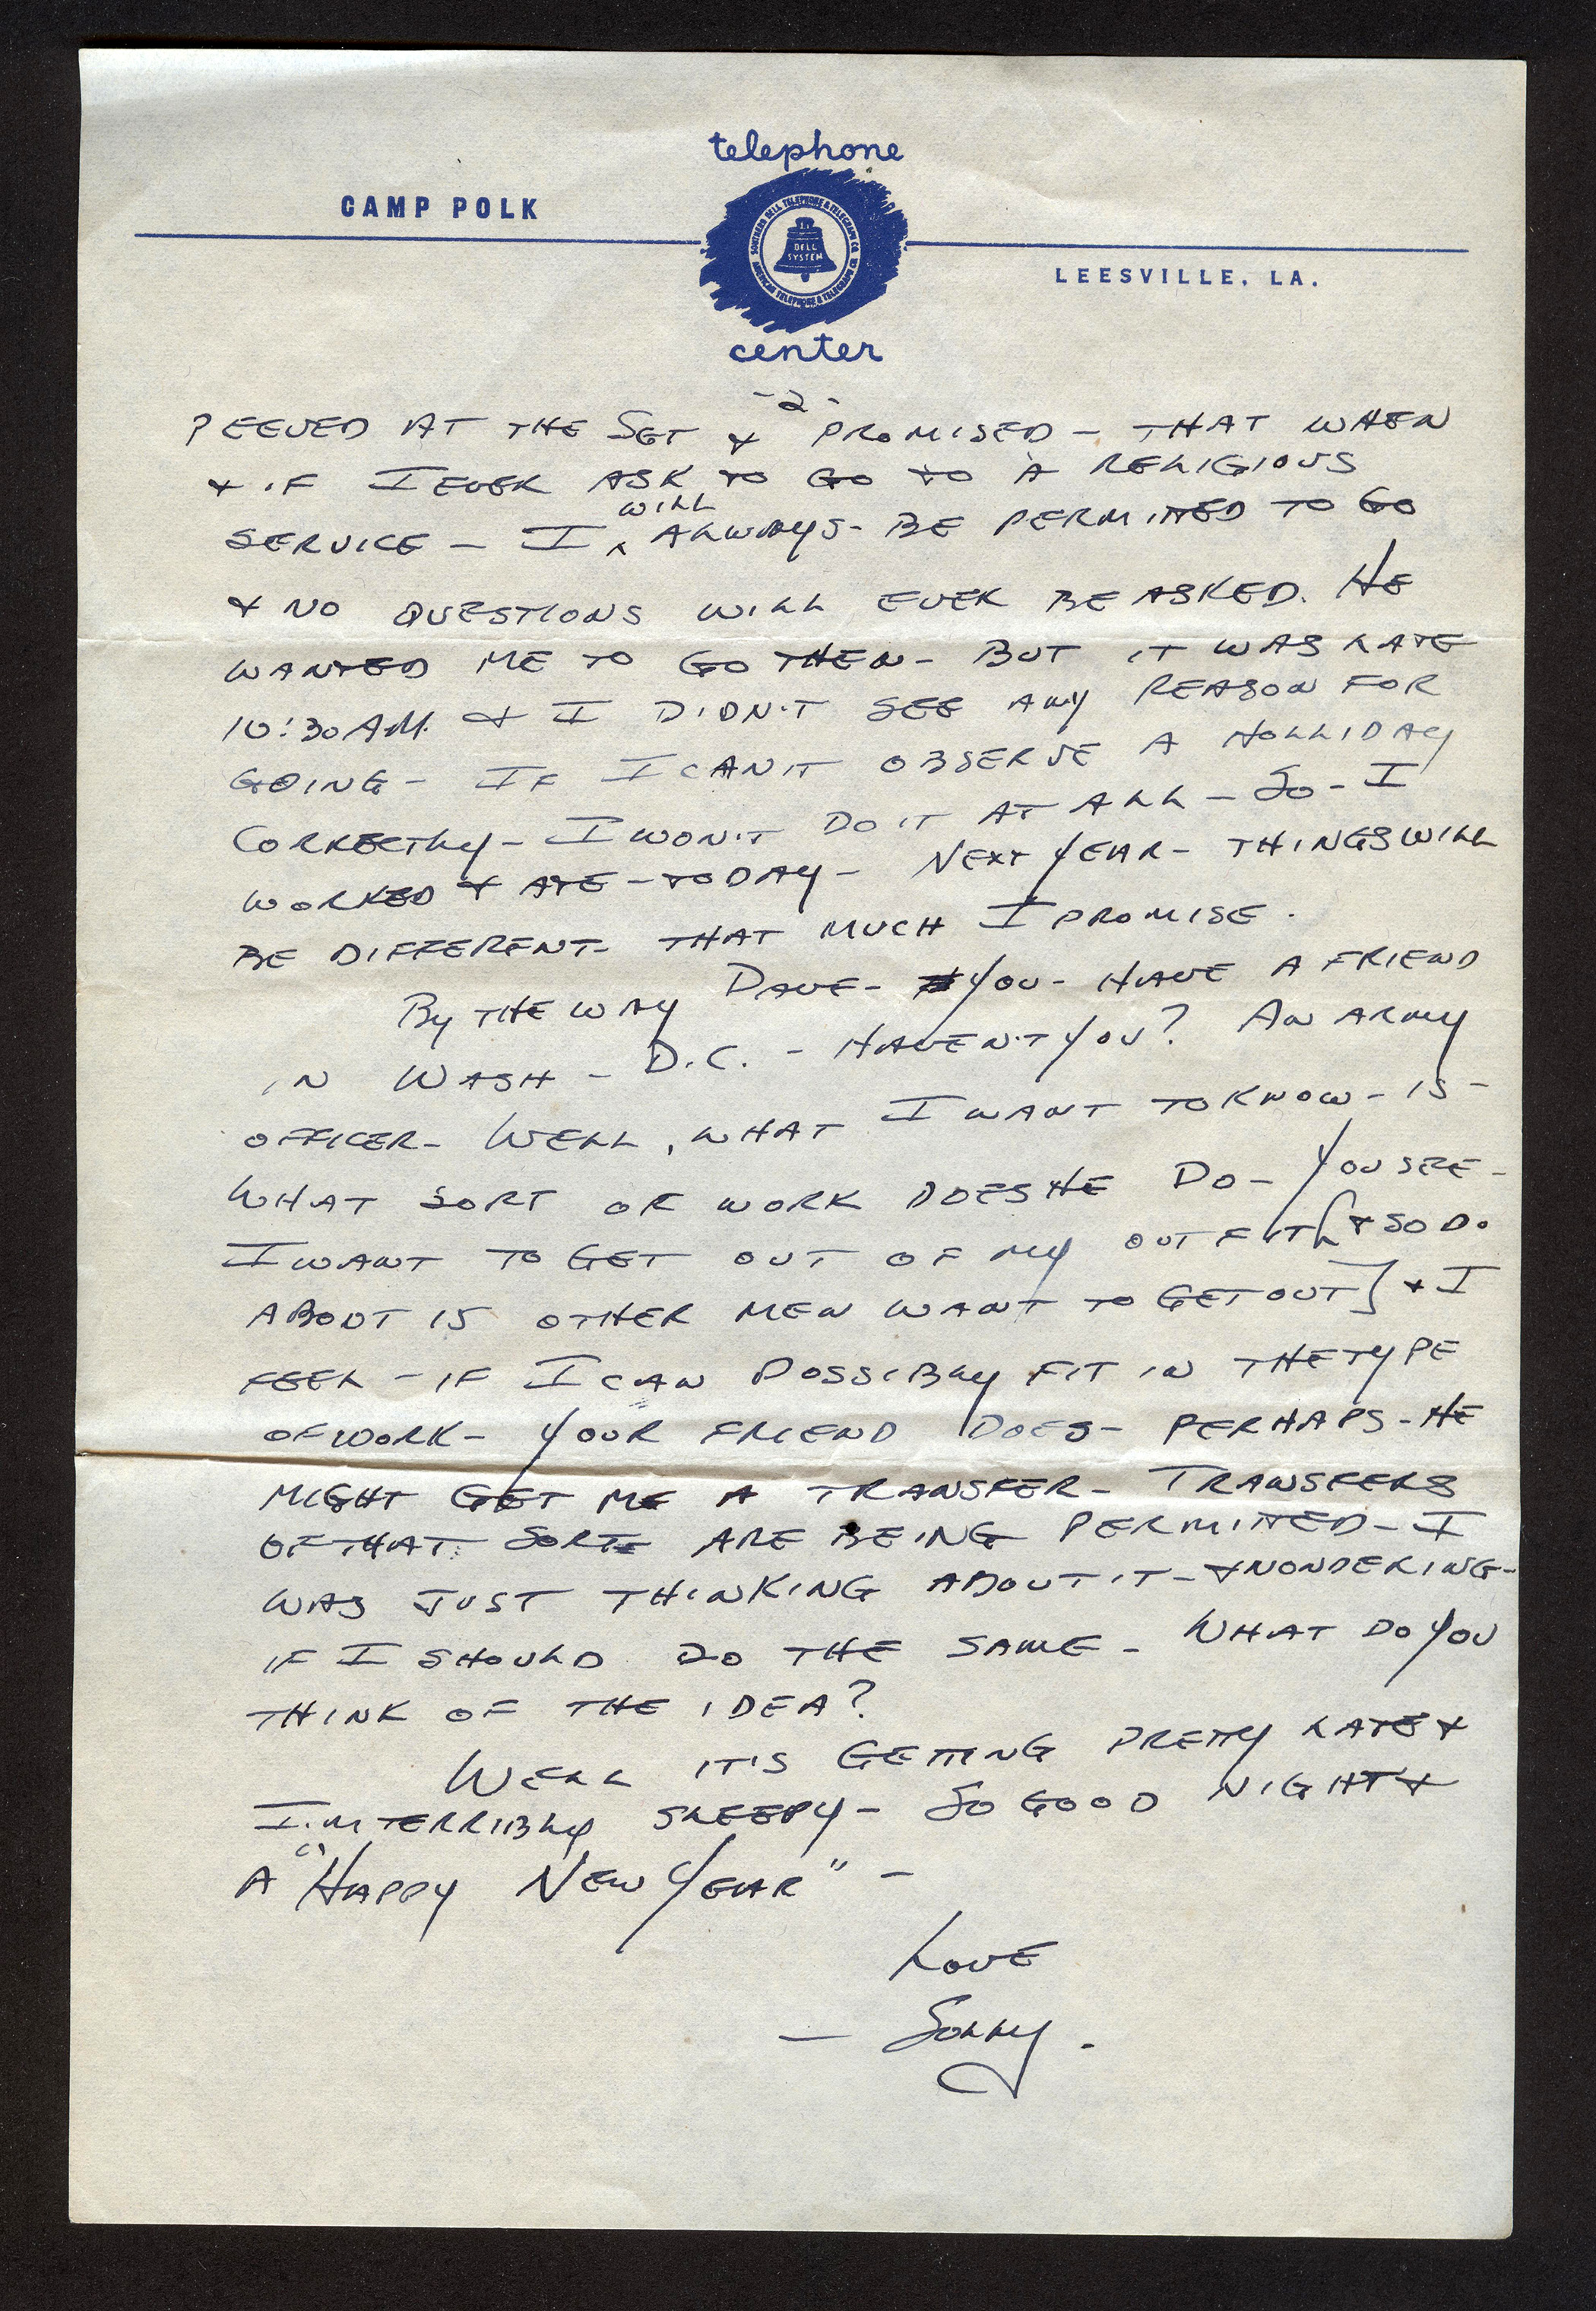 telephone
CAMP POLK
SOUTHERN BELL TELEPHONE & TELEGRAPH CO.
BELL
SYSTEM
AMERICAN TELEPHONE & TELEGRAPH CO.
LEESVILLE, LA.
center
-2-
PEEVED AT THE SGT & PROMISED - THAT WHEN
& IF I EVER ASK TO GO TO A RELIGIOUS
SERVICE - I WILL ALWAYS - BE PERMITTED TO GO
& NO QUESTIONS WILL EVER BE ASKED. HE
WANTED ME TO GO THEN - BUT IT WAS LATE
10:30 AM. & I DIDN'T SEE ANY REASON FOR
GOING - IF I CAN'T OBSERVE A HOLLIDAY
CORRECTLY - I WON'T DO IT AT ALL - SO - I
WORKED & ATE - TODAY - NEXT YEAR - THINGS WILL
BE DIFFERENT - THAT MUCH I PROMISE.
BY THE WAY DAVE - YOU - HAVE A FRIEND
IN WASH - D.C. - HAVEN'T YOU? AN ARMY
OFFICER - WELL, WHAT I WANT TO KNOW - IS -
WHAT SORT OF WORK DOES HE DO - YOU SEE -
I WANT TO GET OUT OF MY OUTFIT [& SO DO
ABOUT 15 OTHER MEN WANT TO GET OUT] & I
FEEL - IF I CAN POSSIBLY FIT IN THE TYPE
OF WORK - YOUR FRIEND DOES - PERHAPS - HE
MIGHT GET ME A TRANSFER - TRANSFERS
OF THAT SORT ARE BEING PERMITTED - I
WAS JUST THINKING ABOUT IT - & WONDERING -
IF I SHOULD DO THE SAME - WHAT DO YOU
THINK OF THE IDEA?
WELL IT'S GETTING PRETTY LATE &
I'M TERRIBLY SLEEPY - SO GOOD NIGHT &
A "HAPPY NEW YEAR" -
LOVE
- SOLLY.